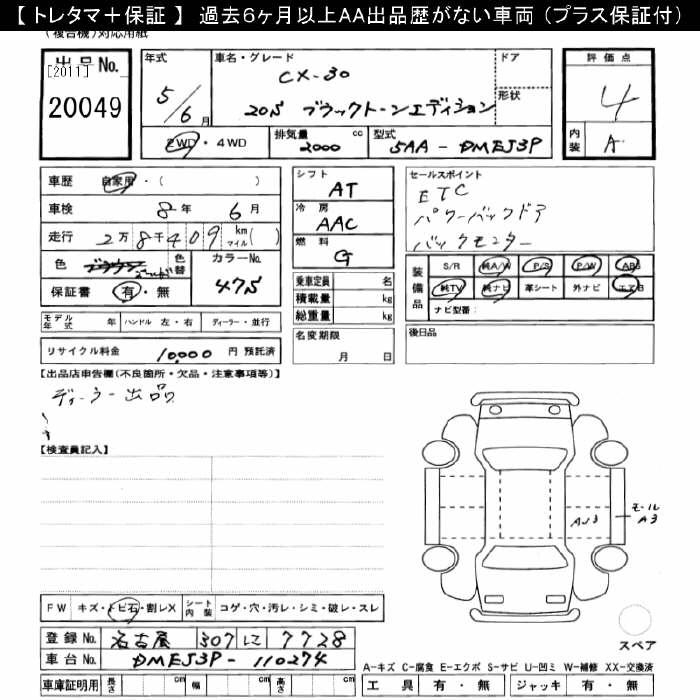 【 トレタマ＋保証 】 過去６ヶ月以上ＡＡ出品歴がない車両（プラス保証付）
(複合機)対応用紙
出品No. [2011] 20049
年式 5/6月
車名・グレード CX-30
20S ブラックトーンエディション
ドア
形状
評価点 4
内装 A
2WD・4WD
排気量 2000 cc
型式 5AA - DMEJ3P
車歴 自家用・( )
車検 8年 6月
走行 2万8千409 km マイル( )
色 ブラウン ゴールド
色替
カラーNo. 47S
保証書 有・無
シフト AT
冷房 AAC
燃料 G
乗車定員 名
積載量 kg
総重量 kg
名変期限 月 日
セールスポイント
ETC
パワーバックドア
バックモニター
装備品 S/R 純A/W P/S P/W ABS
純TV 純ナビ 革シート 外ナビ エアB
ナビ型番:
後日品
モデル年式 年 ハンドル 左・右 ディーラー・並行
リサイクル料金 10,000 円 預託済
【出品店申告欄(不良箇所・欠品・注意事項等)】
ディーラー出品
【検査員記入】
モール
A3
FW キズ・トビ石・割レX シート内装 コゲ・穴・汚レ・シミ・破レ・スレ
登録No. 名古屋 307 に 7728
車台No. DMEJ3P-110274
スペア
A-キズ C-腐食 E-エクボ S-サビ U-凹ミ W-補修 XX-交換済
車庫証明用 長さ cm 幅 cm 高さ cm
工具 有・無 ジャッキ 有・無